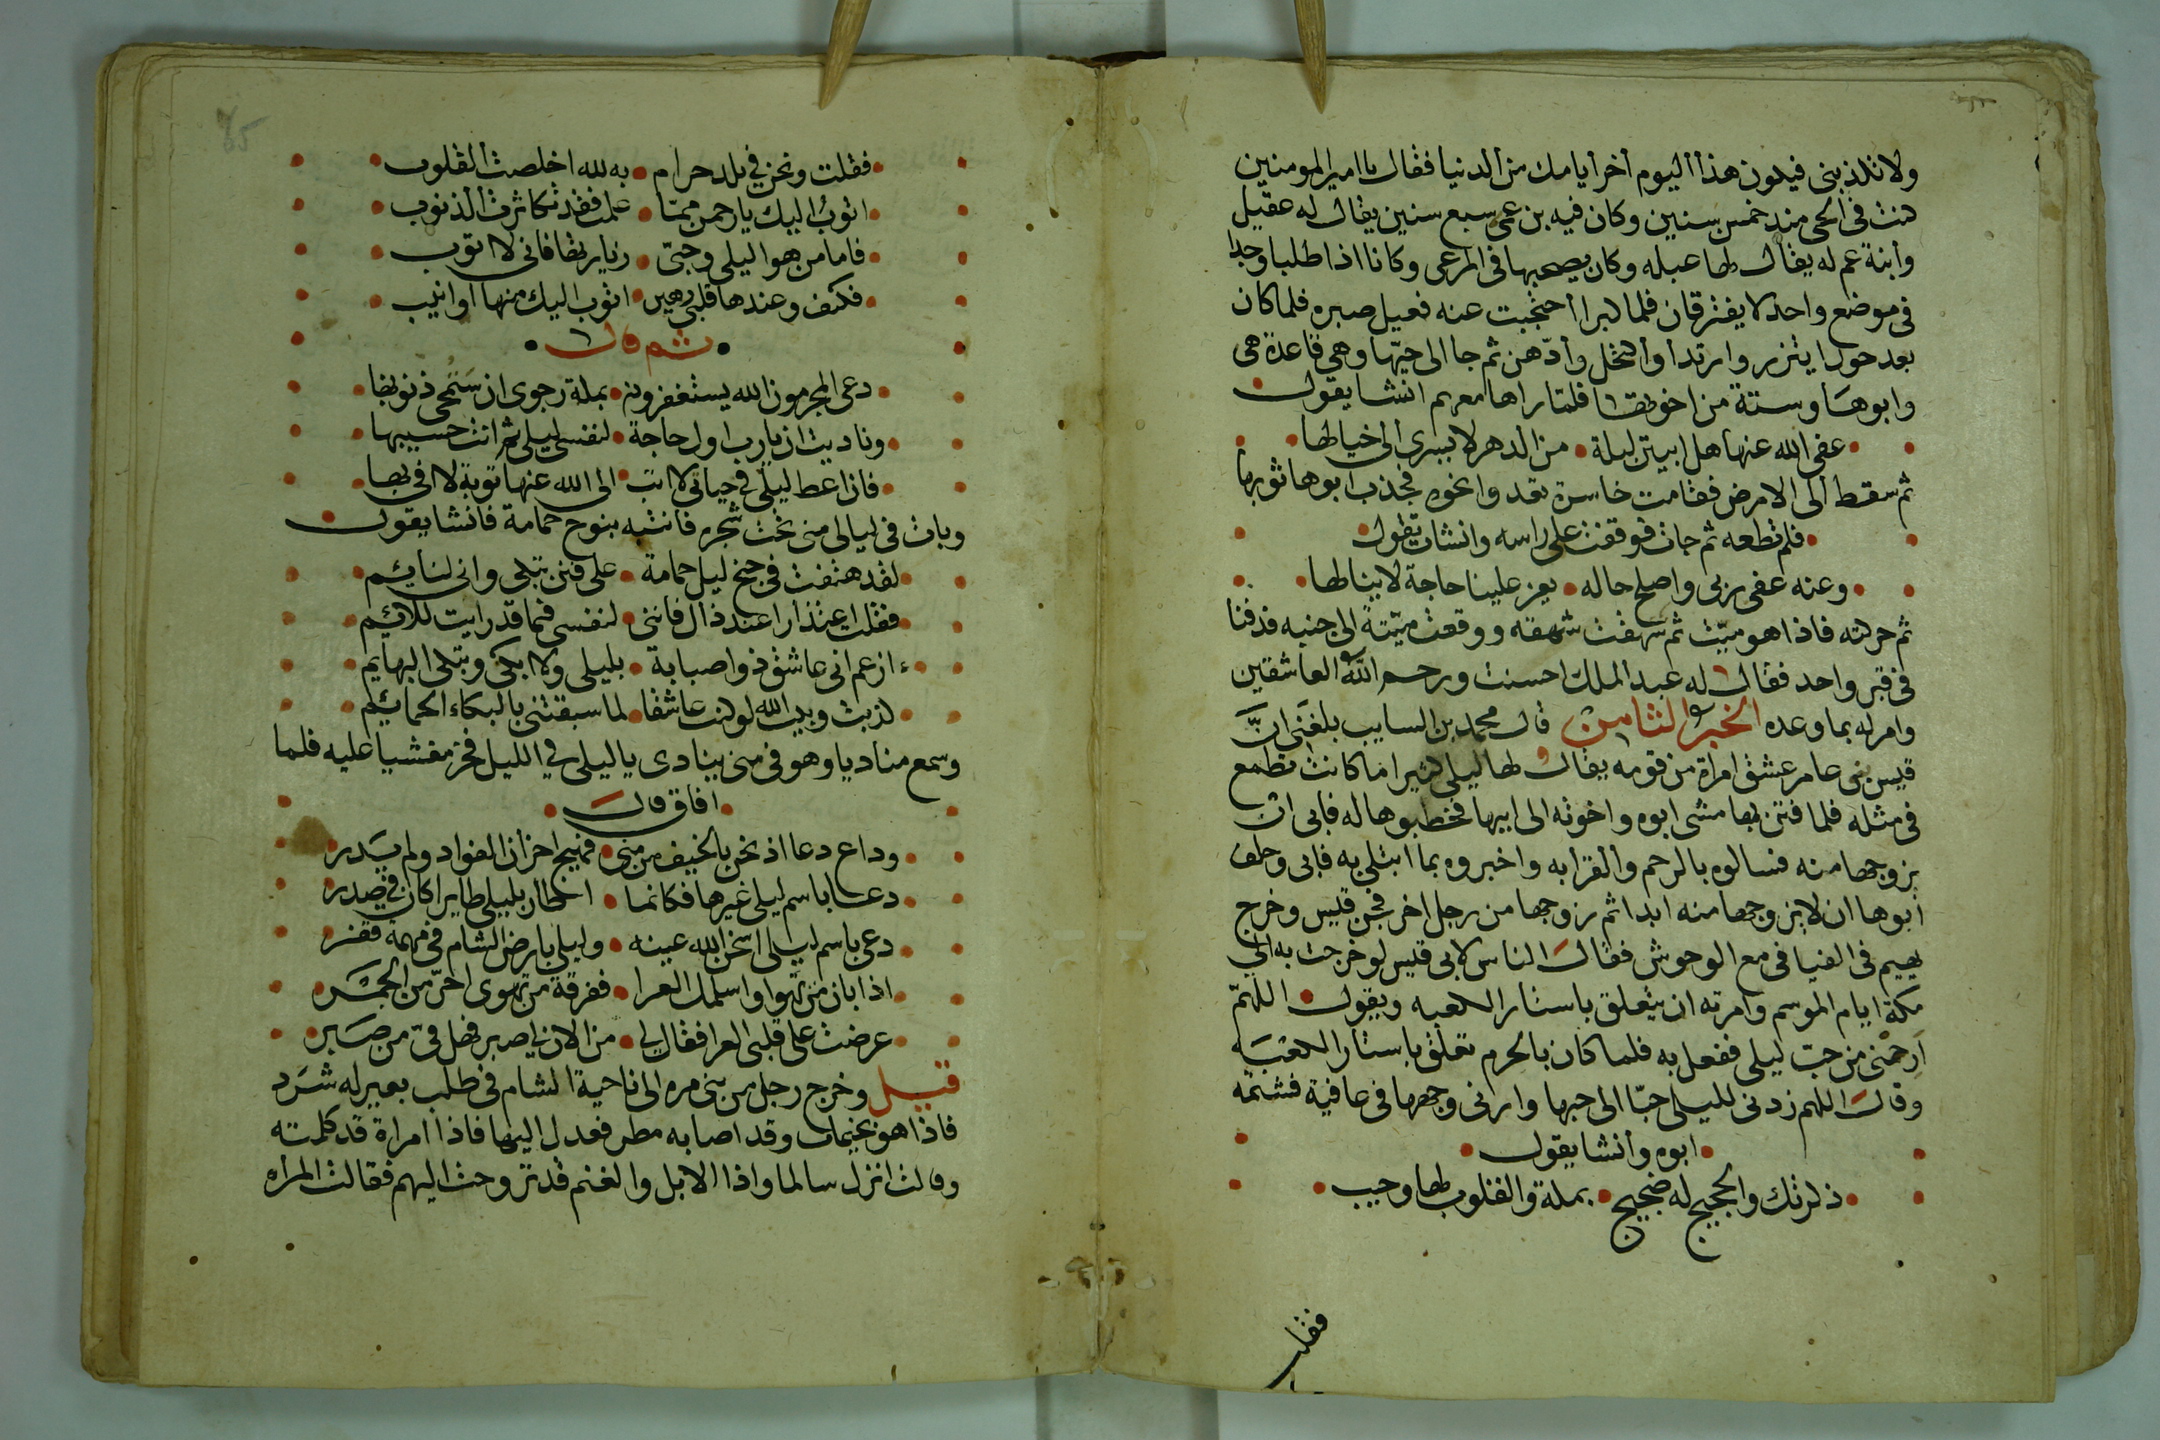 ولا تكذبني فيكون هذا اليوم أخر أيامك من الدنيا فقال يا امير المومنين
كنت في الحي منذ خمس سنين وكان فيه بن عمي سبع سنين يقال له عقيل
وأبنة عم له يقال لها عبله وكان يصحبها في المرعى وكانا اذا طلبا وجدا
في موضع واحد لا يفترقان فلما كبرا أحتجبت عنه فعيل صبره فلما كان
بعد حول ايتزر وارتدا وأكتحل وأدّهن ثم جا الى حيّها وهي قاعدة هي
وابوها وستة من اخوتها فلمّا راها معهم انشا يقول
عفى الله عنها هل ابيتن ليلة من الدهر لا يسرى الى خيالها
ثم سقط الى الارض فقامت خاسرة تعدوا نحوه فجذب ابوها ثوبها
فلم تطعه ثم جات فوقفت على راسه وانشات تقول
وعنه عفى ربى واصلح حاله يعز علينا حاجة لا ينالها
ثم حركته فاذا هو ميّت ثم شهقت شهقه ووقعت ميّتة الى جنبه فدفنا
في قبر واحد فقال له عبد الملك احسنت ورحم الله العاشقين
وامر له بما وعده الخبر الثامن قال محمد بن السايب بلغني انّ
قيس بنى عامر عشق امراة من قومه يقال لها ليلى كثيرا ما كانت تطمع
في مثله فلما فتن بها مشى ابوه واخوته الى ابيها فخطبوها له فابى ان
يزوجها منه فسالوه بالرحم والقرابه واخبروه بما ابتلى به فابى وحلف
أبوها ان لا يزوجها منه ابدا ثم زوجها من رجل اخر فجن قيس وخرج
يهيم في الفيافي مع الوحوش فقال الناس لابى قيس لو خرجت به الى
مكة ايام الموسم وامرته ان يتعلق باستار الكعبه ويقول اللهمّ
ارحمني من حبّ ليلى ففعل به فلما كان بالحرم تعلق باستار الكعبة
وقال اللهم زدنى لليلى حبّا الى حبها وارانى وجهها في عافية فشتمه
ابوه وأنشا يقول
ذكرتك والحجيج له ضجيج بمكة والقلوب لها وجيب
فقلت
فقلت ونحن في بلد حرام به لله اخلصت القلوب
اتوب اليك يارحمن ممّا عملت فقد تكاثرت الذنوب
فاما من هوا ليلى وحبّى زيارتها فانى لا اتوب
فكيف وعندها قلبى رهين اتوب اليك منها او انيب
ثم قال
دعى المجرمون الله يستغفرونه بمكة رجوى ان ستمحى ذنوبها
وناديت ان يارب اول حاجة لنفسى ليلى ثم انت حسيبها
فان اعط ليلى في حياتى لا اتب الى الله عنها توبة لا افى بها
وبات في ليالى منى تحت شجره فانتبه بنوح حمامة فانشا يقول
لقد هتفت في جنح ليل حمامة على فنن تبكى وانى لنايم
فقلت اعتذارا عند ذاك فاننى لنفسى فيما قد رايت لّلائم
ءازعم انى عاشق ذواصبابة بليلى ولا ابكى وتبكى البهايم
كذبت وبيت الله لو كنت عاشقا لما سبقتنى بالبكاء الحمائم
وسمع مناديا وهو في منى ينادى يا ليلى في الليل فخرّ مغشيا عليه فلما
افاق قال
وداع دعا اذ نحن بالخيف من منى فهيج احزان الفواد ولم يدر
دعا باسم ليلى غيرها فكانما اطار بليلى طايرا كان في صدر
دعى باسم ليلى اسخن الله عينه وليلى بارض الشام في مهمة قفر
اذا بان من تهوا واسلمك العرا ففرقة من تهوى احرّ من الجمر
عرضت على قلبى العرا فقال لى من الان في اصبر فهل فىّ من صبر
قيل وخرج رجل من بنى مره الى ناحية الشام في طلب بعير له شرد
فاذا هو بخيمات وقد اصابه مطر فعدل اليها فاذا امراة قد كلمته
وقالت انزل سالما واذا الابل والغنم قد تروحت اليهم فقالت المراه